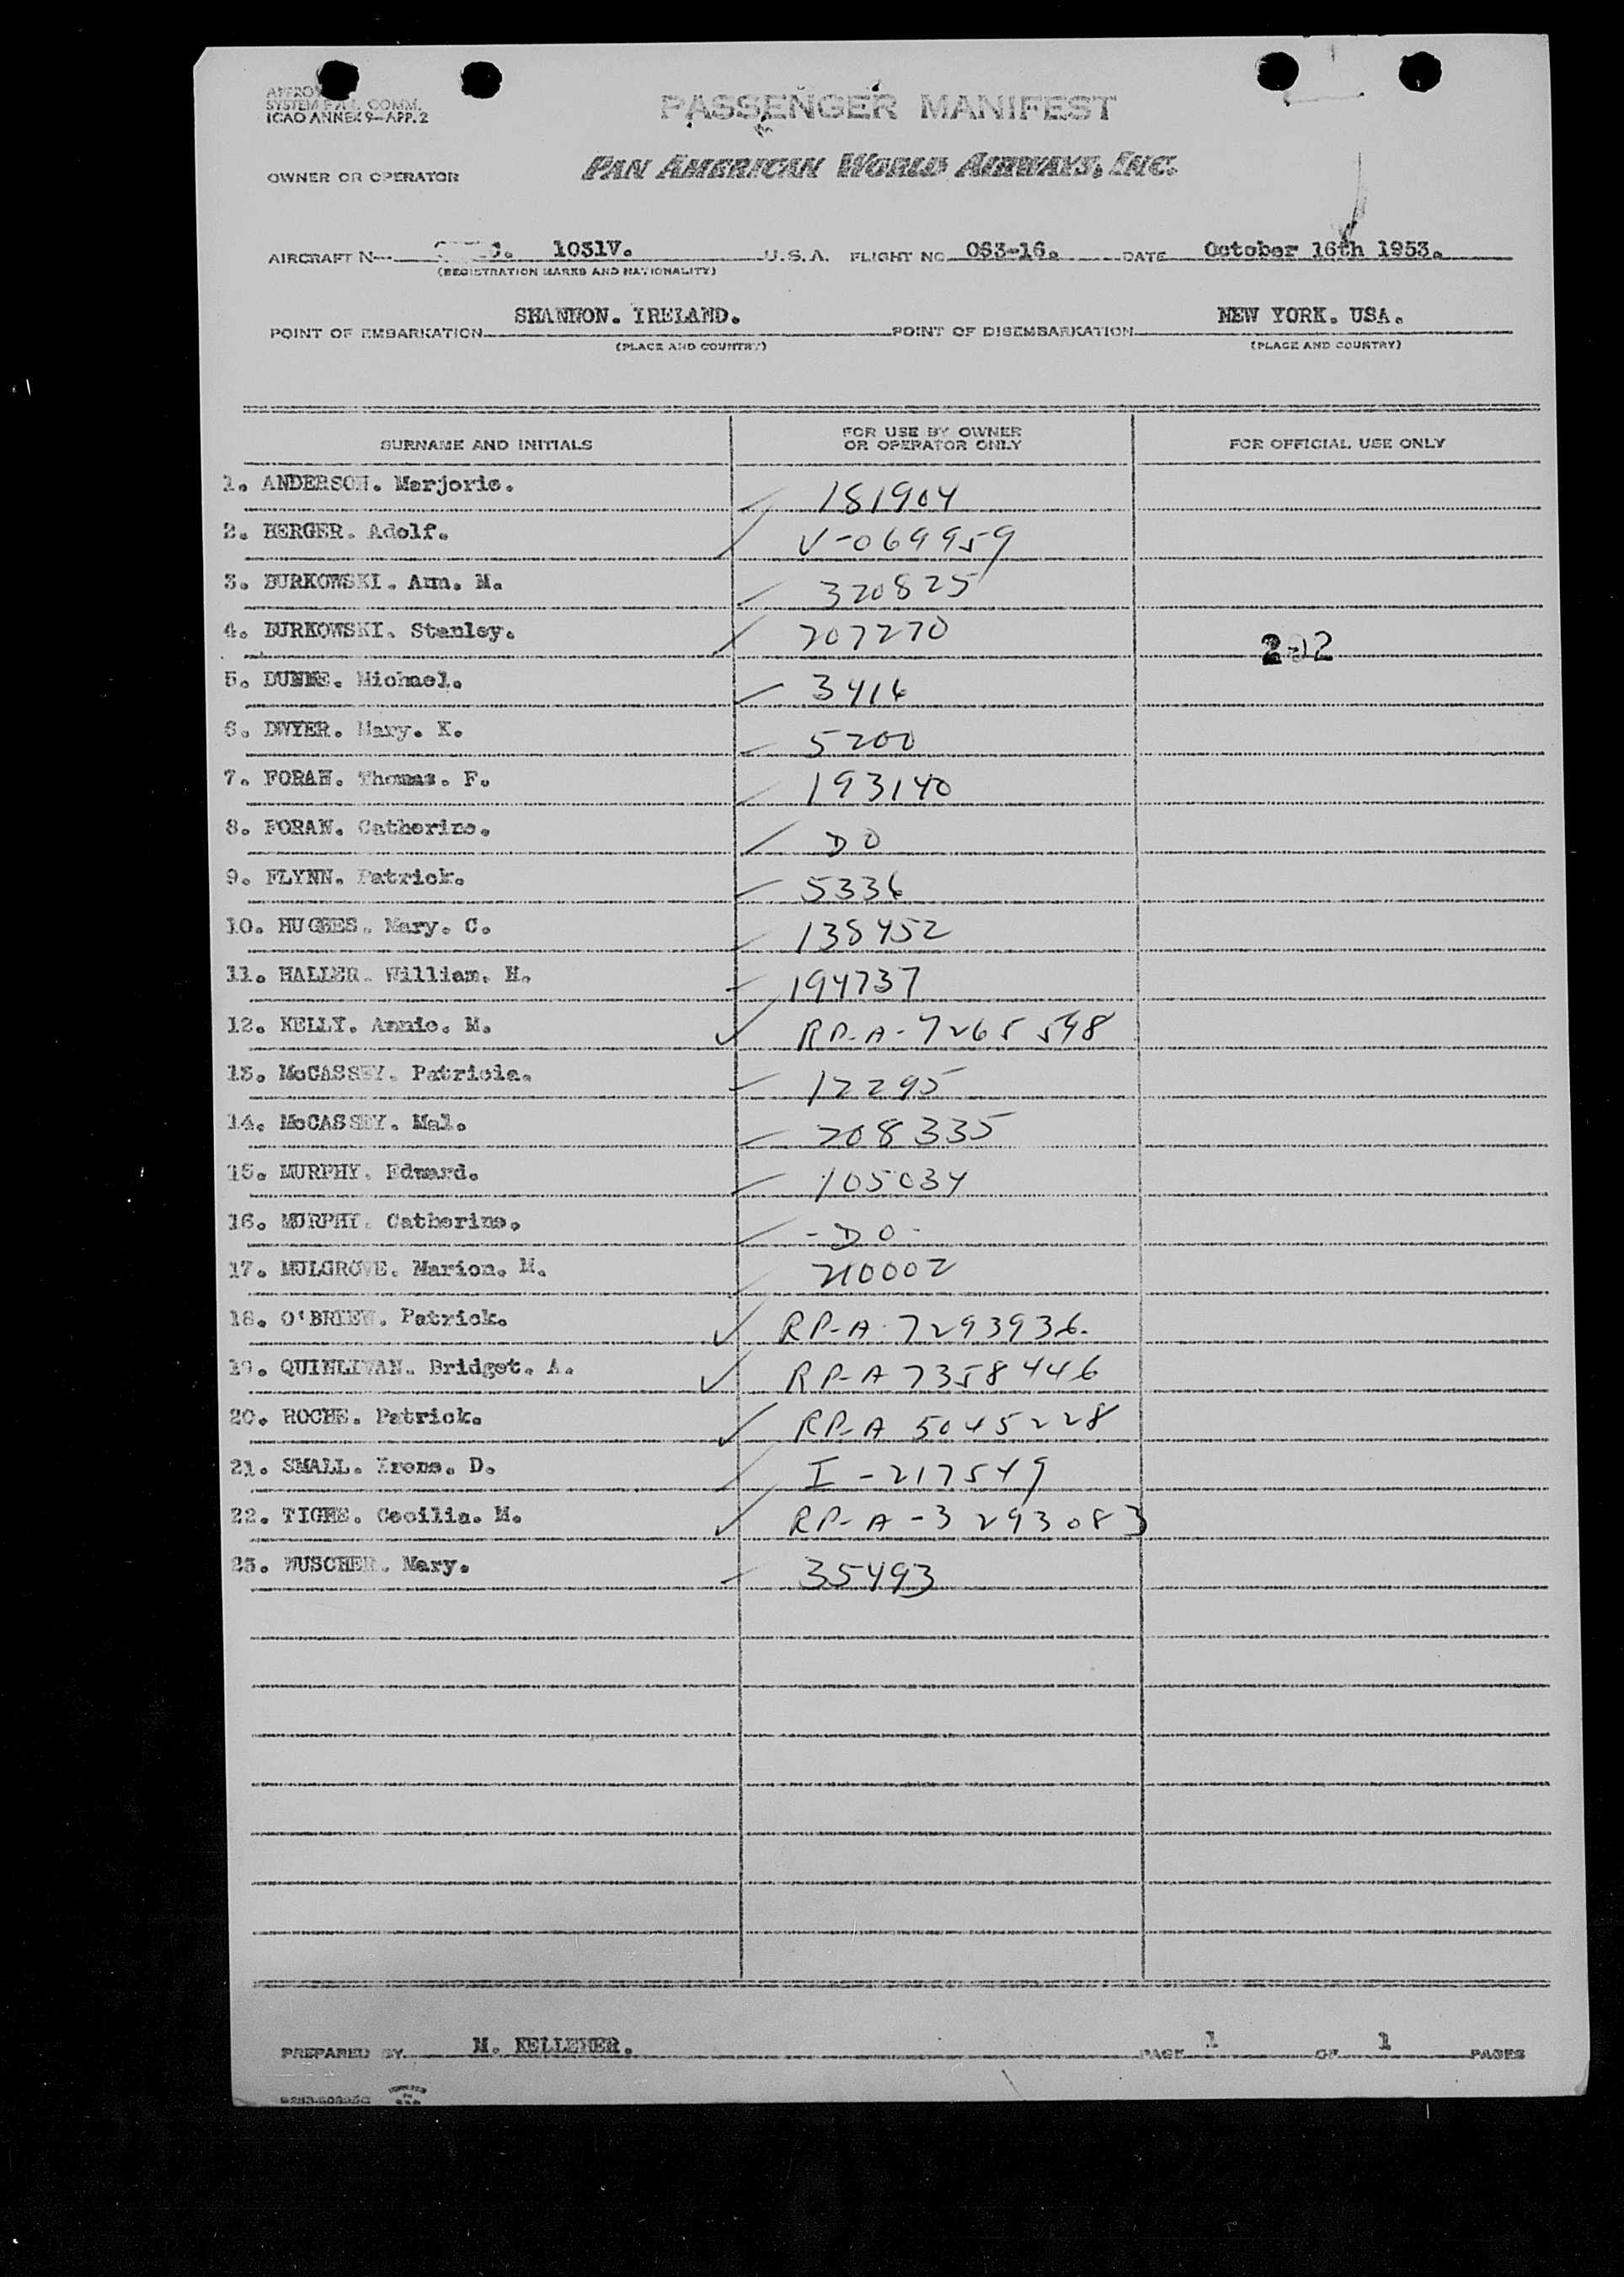 SYSTEM COMM.
ICAO ANNEX 9-APP. 2
PASSENGER MANIFEST
OWNER OR OPERATOR PAN AMERICAN WORLD AIRWAYS, INC.
AIRCRAFT N 1031V. U.S.A. FLIGHT NO 063-16. DATE October 16th 1953.
(REGISTRATION MARKS AND NATIONALITY)
POINT OF EMBARKATION SHANNON. IRELAND. POINT OF DISEMBARKATION NEW YORK. USA.
(PLACE AND COUNTRY) (PLACE AND COUNTRY)
SURNAME AND INITIALS FOR USE BY OWNER OR OPERATOR ONLY FOR OFFICIAL USE ONLY
1. ANDERSON. Marjorie. 181904
2. BERGER. Adolf. V-069959
3. BURKOWSKI. Ann. M. 320825
4. BURKOWSKI. Stanley. 207270 2-02
5. DUNNE. Michael. 3416
6. DWYER. Mary. K. 5200
7. FORAN. Thomas. F. 193140
8. FORAN. Catherine. DO
9. FLYNN. Patrick. 5336
10. HUGHES. Mary. C. 138452
11. HALLER. William. H. 194737
12. KELLY. Annie. M. RP-A-7265598
13. McCASSEY. Patricia. 12295
14. McCASSEY. Mal. 208335
15. MURPHY. Edward. 105034
16. MURPHY. Catherine. -DO-
17. MULGROVE. Marion. M. 210002
18. O'BRIEN. Patrick. RP-A-7293936.
19. QUINLIVAN. Bridget. A. RP-A 7358446
20. ROCHE. Patrick. RP-A 5045228
21. SMALL. Irene. D. I-217549
22. TIGHE. Cecilia. M. RP-A-3293083
23. WUSCHER. Mary. 35493
PREPARED BY M. KELLEHER. PAGE 1 OF 1 PAGES